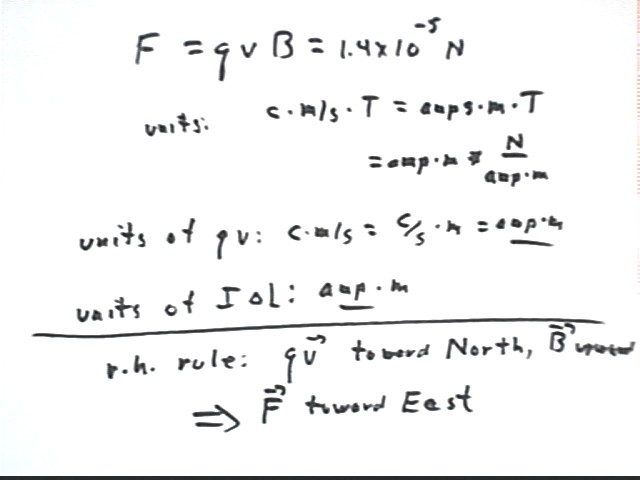 F = qvB = 1.4x10⁻⁵ N
units: C·m/s·T = amps·m·T
= amp·m * N/amp·m
units of qv: C·m/s = C/s·m = amp·m
units of IΔL: amp·m
r.h. rule: qv⃗ toward North, B⃗ upward
⇒ F⃗ toward East